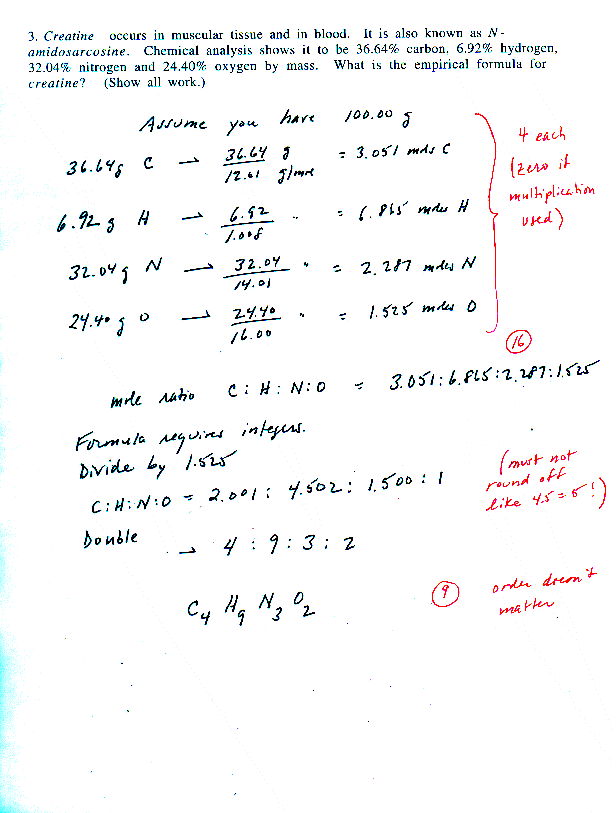 3. Creatine occurs in muscular tissue and in blood. It is also known as N-
amidosarcosine. Chemical analysis shows it to be 36.64% carbon, 6.92% hydrogen,
32.04% nitrogen and 24.40% oxygen by mass. What is the empirical formula for
creatine? (Show all work.)
Assume you have 100.00 g
36.64g C → 36.64 g / 12.01 g/mol = 3.051 mols C
6.92 g H → 6.92 / 1.008 " = 6.865 moles H
32.04 g N → 32.04 / 14.01 " = 2.287 moles N
24.40 g O → 24.40 / 16.00 " = 1.525 moles O
4 each
(zero if
multiplication
used)
16
mole ratio C : H : N : O = 3.051 : 6.865 : 2.287 : 1.525
Formula requires integers.
Divide by 1.525
C:H:N:O = 2.001 : 4.502 : 1.500 : 1
(must not
round off
like 4.5 = 5!)
Double → 4 : 9 : 3 : 2
C4 H9 N3 O2
9
order doesn't
matter